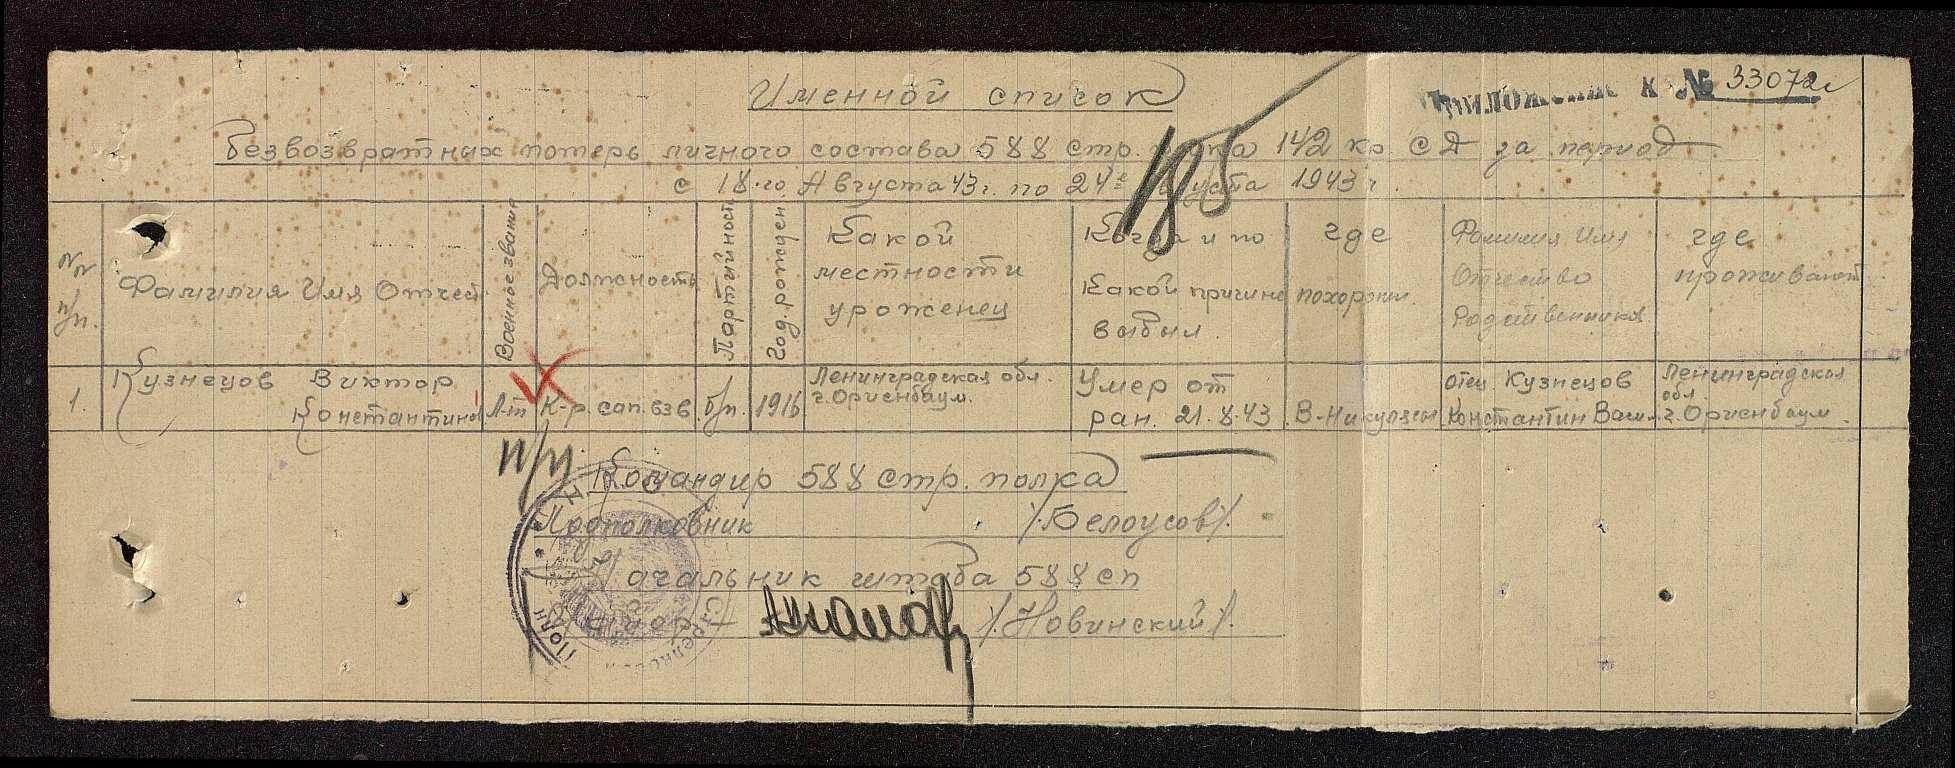 Именной список
Приложение к № 33072с
185
Безвозвратных потерь личного состава 588 стр. полка 142 кр. СД за период
с 18-го Августа 43 г. по 24е Августа 1943 г.
№№ п/п.
Фамилия Имя Отчест
Военное звание
Должность
Партийность
Год. рожден.
Какой местности уроженец
Когда и по Какой причине выбыл
где похоронен
Фамилия Имя Отчество Родственников
где проживают
1.
Кузнецов Виктор Константинов
Л-т
К-р. сап. взв.
б/п.
1916
Ленинградская обл. г. Ориенбаум.
Умер от ран. 21.8.43
отец Кузнецов Константин Васил.
Ленинградская обл. г. Ориенбаум
п/п Командир 588 стр. полка
Подполковник /Белоусов/.
Начальник штаба 588 сп
/Новинский/.